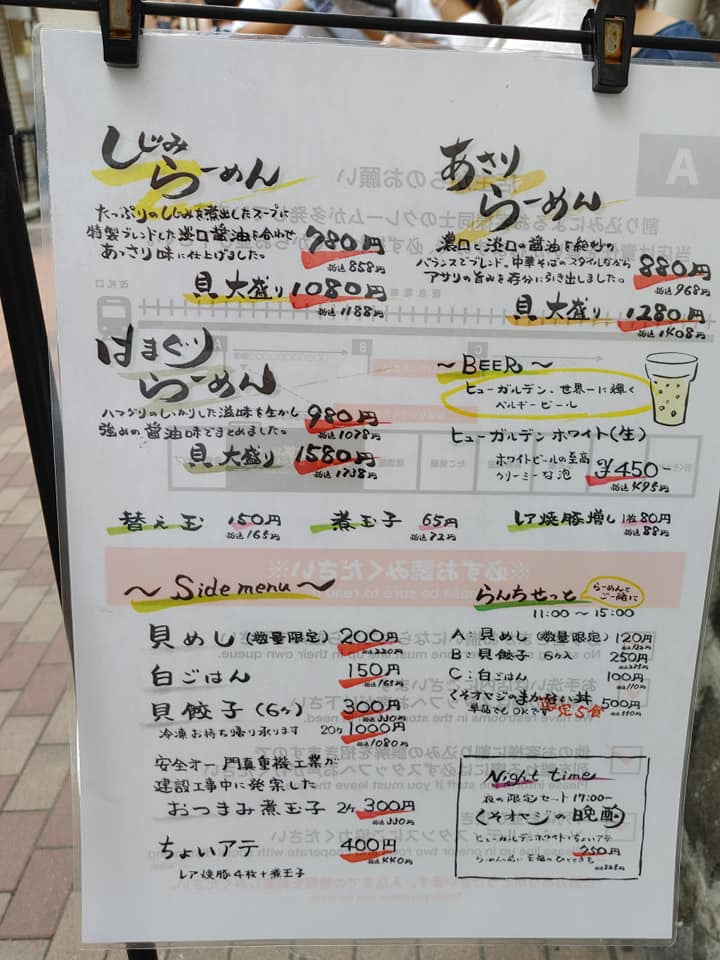 しじみ
らーめん
たっぷりのしじみを煮出したスープに
特製ブレンドした淡口醤油を合わせ
あっさり味に仕上げました。
780円
税込858円
貝 大盛り 1080円
税込1188円
あさり
らーめん
濃口と淡口の醤油を絶妙の
バランスでブレンド、中華そばのスタイルながら
アサリの旨みを存分に引き出しました。
880円
税込968円
貝 大盛り 1280円
税込1408円
はまぐり
らーめん
ハマグリのしっかりした滋味を生かし
強めの醤油味でまとめました。
980円
税込1078円
貝 大盛り 1580円
税込1738円
～BEER～
ヒューガルデン、世界一に輝く
ベルギービール
ヒューガルデンホワイト(生)
ホワイトビールの至高
クリーミーな泡
¥450
税込495円
替え玉 150円
税込165円
煮玉子 65円
税込72円
レア焼豚増し 1枚80円
税込88円
～Side menu～
貝めし(数量限定) 200円
税込220円
白ごはん 150円
税込165円
貝餃子(6ヶ) 300円
税込330円
冷凍お持ち帰り承ります 20ヶ1000円
税込1080円
安全オー 門真重機工業が
建設工事中に発案した
おつまみ煮玉子 2ヶ300円
税込330円
ちょいアテ 400円
税込440円
レア焼豚4枚+煮玉子
らんちせっと
らーめんと
ご一緒に
11:00～15:00
A:貝めし(数量限定) 120円
B:貝餃子 6ヶ入 250円
税込275円
C:白ごはん 100円
税込110円
くそオヤジのまかない丼 500円
税込550円
単品でもOKです 限定5食
Night time
夜の限定セット 17:00～
くそオヤジの晩酌
ヒューガルデンホワイト・ちょいアテ
750円
税込825円